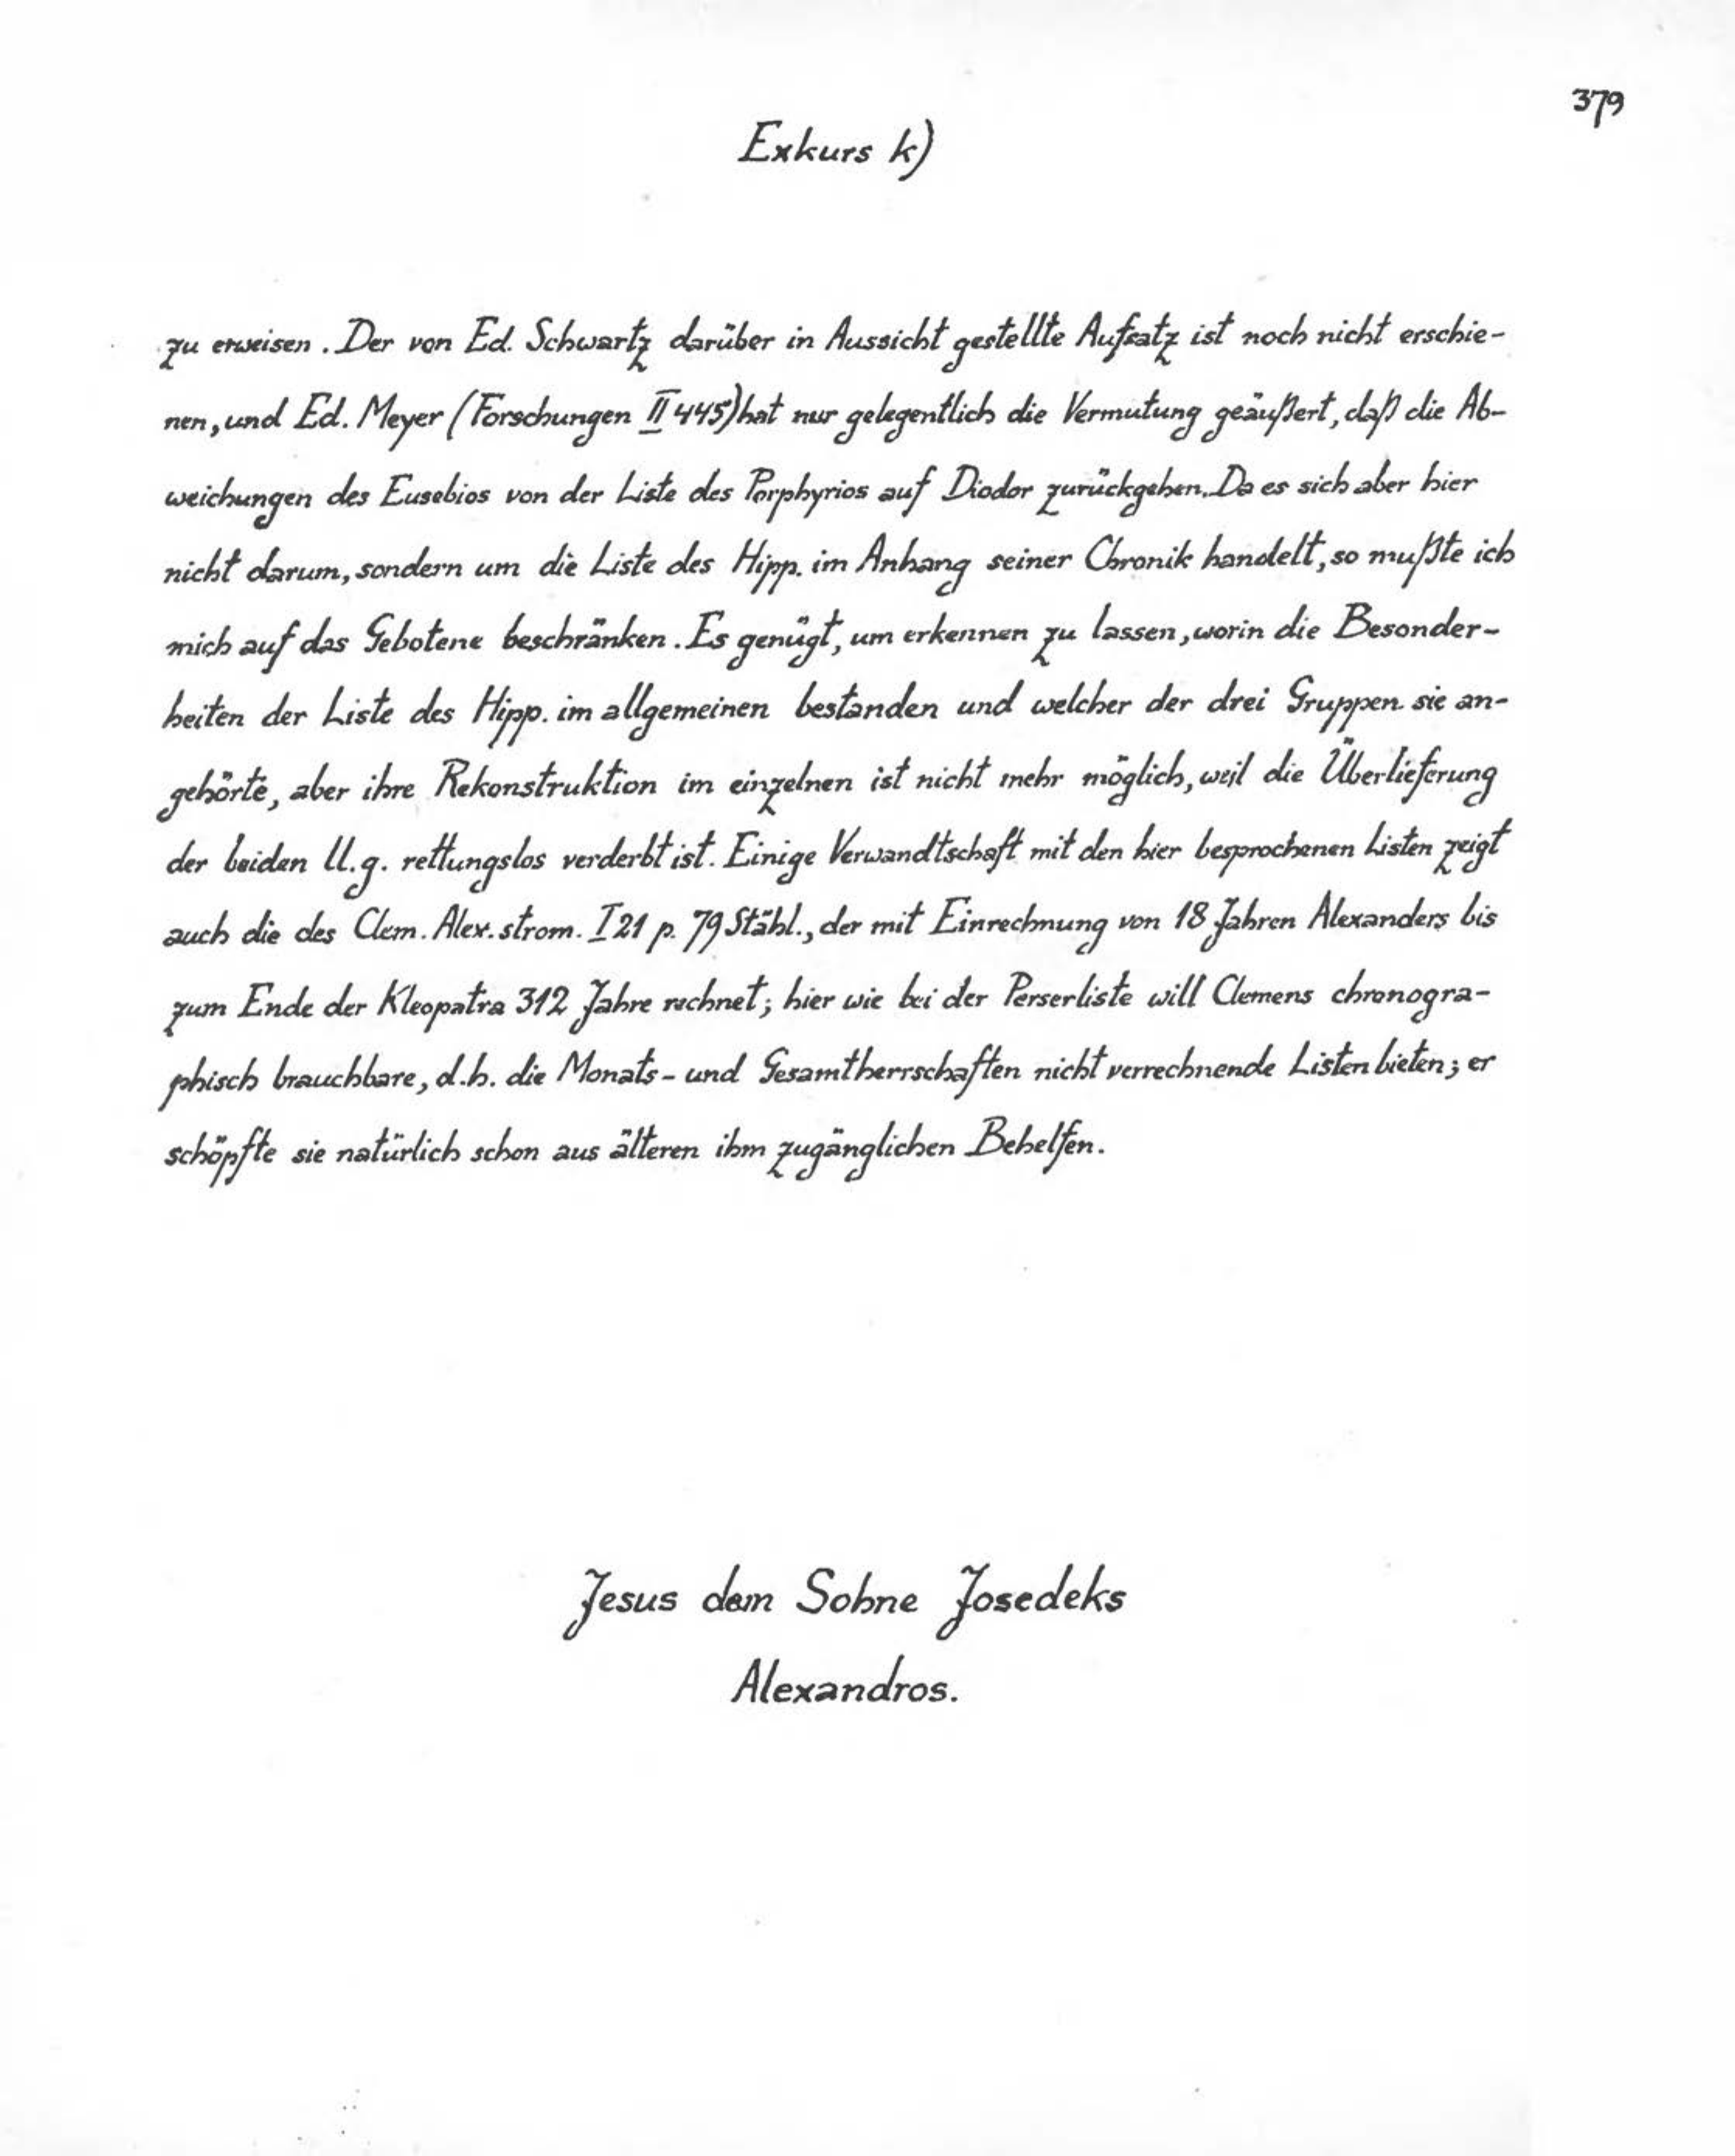 379
Exkurs k)
zu erweisen. Der von Ed. Schwartz darüber in Aussicht gestellte Aufsatz ist noch nicht erschie-
nen, und Ed. Meyer (Forschungen II 445) hat nur gelegentlich die Vermutung geäußert, daß die Ab-
weichungen des Eusebios von der Liste des Porphyrios auf Diodor zurückgehen. Da es sich aber hier
nicht darum, sondern um die Liste des Hipp. im Anhang seiner Chronik handelt, so mußte ich
mich auf das Gebotene beschränken. Es genügt, um erkennen zu lassen, worin die Besonder-
heiten der Liste des Hipp. im allgemeinen bestanden und welcher der drei Gruppen sie an-
gehörte, aber ihre Rekonstruktion im einzelnen ist nicht mehr möglich, weil die Überlieferung
der beiden ll.g. rettungslos verderbt ist. Einige Verwandtschaft mit den hier besprochenen Listen zeigt
auch die des Clem. Alex. strom. I 21 p. 79 Stähl., der mit Einrechnung von 18 Jahren Alexanders bis
zum Ende der Kleopatra 312 Jahre rechnet; hier wie bei der Perserliste will Clemens chronogra-
phisch brauchbare, d.h. die Monats- und Gesamtherrschaften nicht verrechnende Listen bieten; er
schöpfte sie natürlich schon aus älteren ihm zugänglichen Behelfen.
Jesus dem Sohne Josedeks
Alexandros.